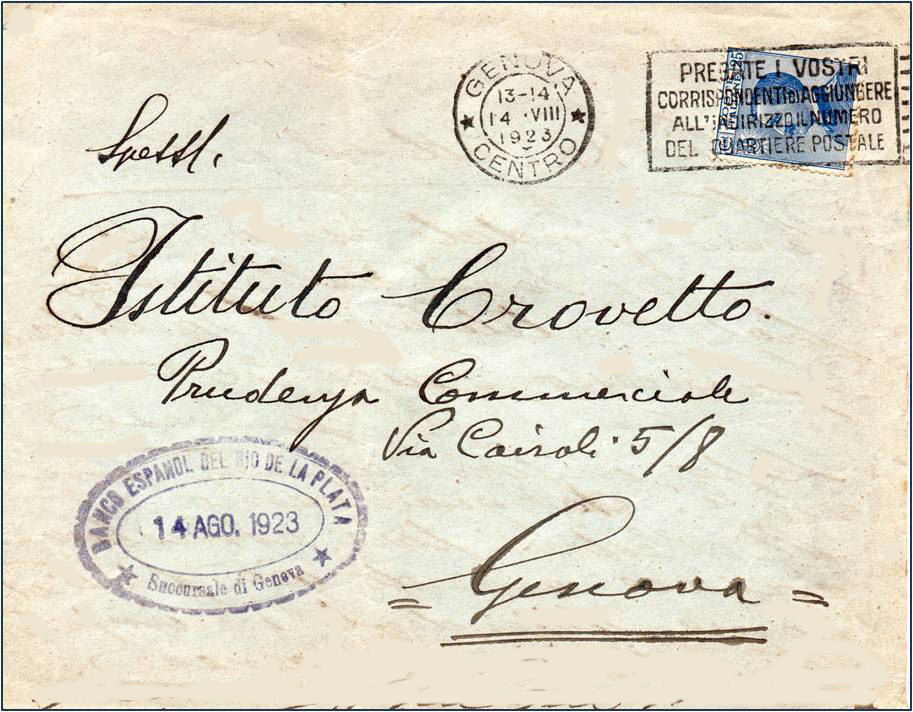 GENOVA
13-14
14 VIII
1923
CENTRO
PRESATE I VOSTRI
CORRISPONDENTI DI AGGIUNGERE
ALL'INDIRIZZO IL NUMERO
DEL QUARTIERE POSTALE
25
Spessl.
Istituto Crovetto.
Prudenza Commerciale
Via Cairoli 5/8
Genova
BANCO ESPAÑOL DEL RIO DE LA PLATA
14 AGO. 1923
Succursale di Genova